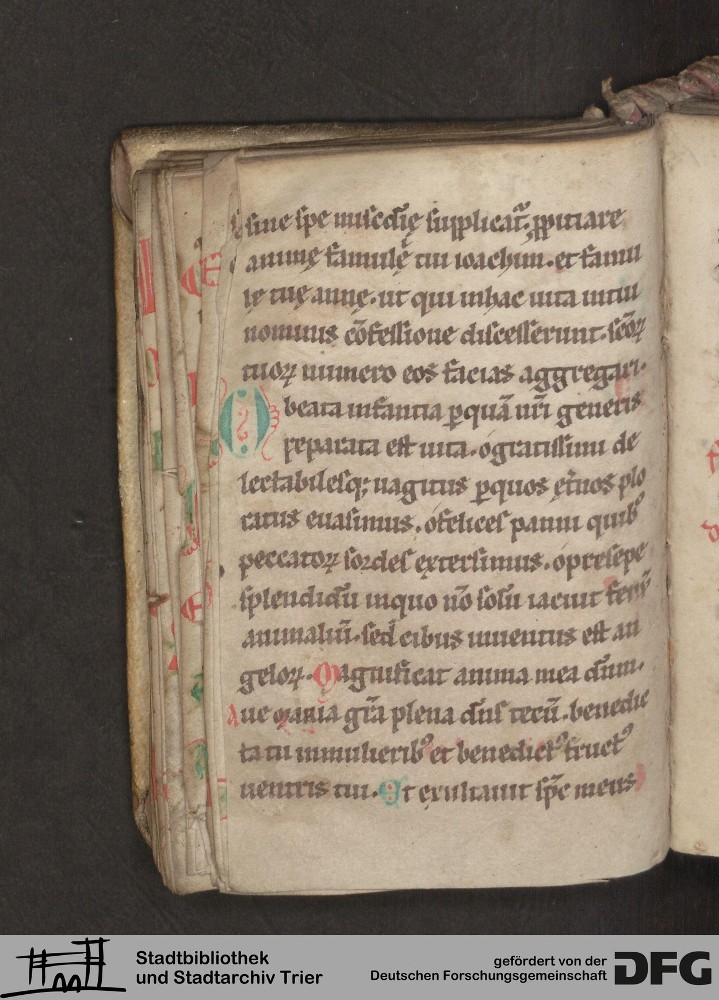 sine spe miſcdīę ſupplicat̄. ꝓpitiare
animę famulę tui ioachim. et famu
lę tuę annę. ut qui inhac uita intui
nominis cōfeſſione diſceſſerunt. ſcōꝝ
tuoꝝ numero eos facias aggregari.
O beata infantia ꝑquā nr̄i generis
reparata eſt uita. ogratiſſimi de
lectabileſqꝫ uagitus ꝑquos ęt̄nos plo
ratus euaſimus. ofelices panni quibꝰ
peccatoꝝ ſordeſ exterſimus. opreſepe
ſplendidū inquo nō ſolū iacuit fenū
animaliū. ſed cibus inuentus eſt an
geloꝝ. Magnificat anima mea dn̄m.
Aue maria gr̄a plena dn̄ſ tecū. benedic
ta tu inmulieribꝰ et benedictꝰ fructꝰ
uentris tui. Et exultauit ſpc̄ meus
Stadtbibliothek
und Stadtarchiv Trier
gefördert von der
Deutschen Forschungsgemeinschaft
DFG